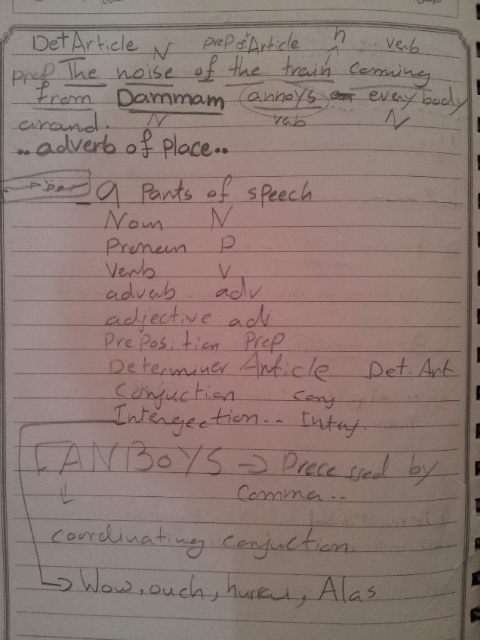 Det Article N prep Det Article n verb
prep The noise of the train coming
from Dammam annoys every body
around. N verb N
.. adverb of place..
9 Parts of speech
Noun N
Pronoun P
Verb V
adverb adv
adjective adj
Preposition Prep
Determiner Article Det. Art
Conjuction conj
Interjection.. Interj.
FANBOYS → Precessed by
Comma..
coordinating conjuction
→ Wow, ouch, hurrai, Alas